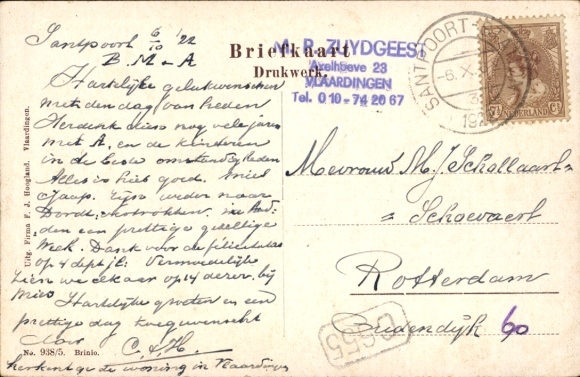 Santpoort 6/10 '22
B. M. & A
Hartelijke gelukwenschen
met den dag van heden
Herdenk dien nog vele jaren
met A. en de kinderen
in de beste omstandigheden
Alles is hier goed.
Jaap. zijn weder naar
Dordt. vertrokken.
den een prettige gezellige
week. Dank voor de felicitatie
op 4 dept. jl. Vermoedelijk
zien we elkaar op 14 dezer. bij
Mies
Hartelijke groeten en een
prettige dag toegewenscht
door
C. & H.
herkent ge de woning in Vlaardingen
Briefkaart
Drukwerk.
M. R. ZUYDGEEST
Axelhoeve 23
VLAARDINGEN
Tel. 010 - 74 20 67
SANTPOORT
-6.X.
192
7½ Ct
NEDERLAND
Mevrouw M. J. Schollaart=
= Schoevaert
Rotterdam
Oudendijk 60
C655
Uitg. Firma F. J. Hoogland. Vlaardingen.
No. 938/5. Brinio.